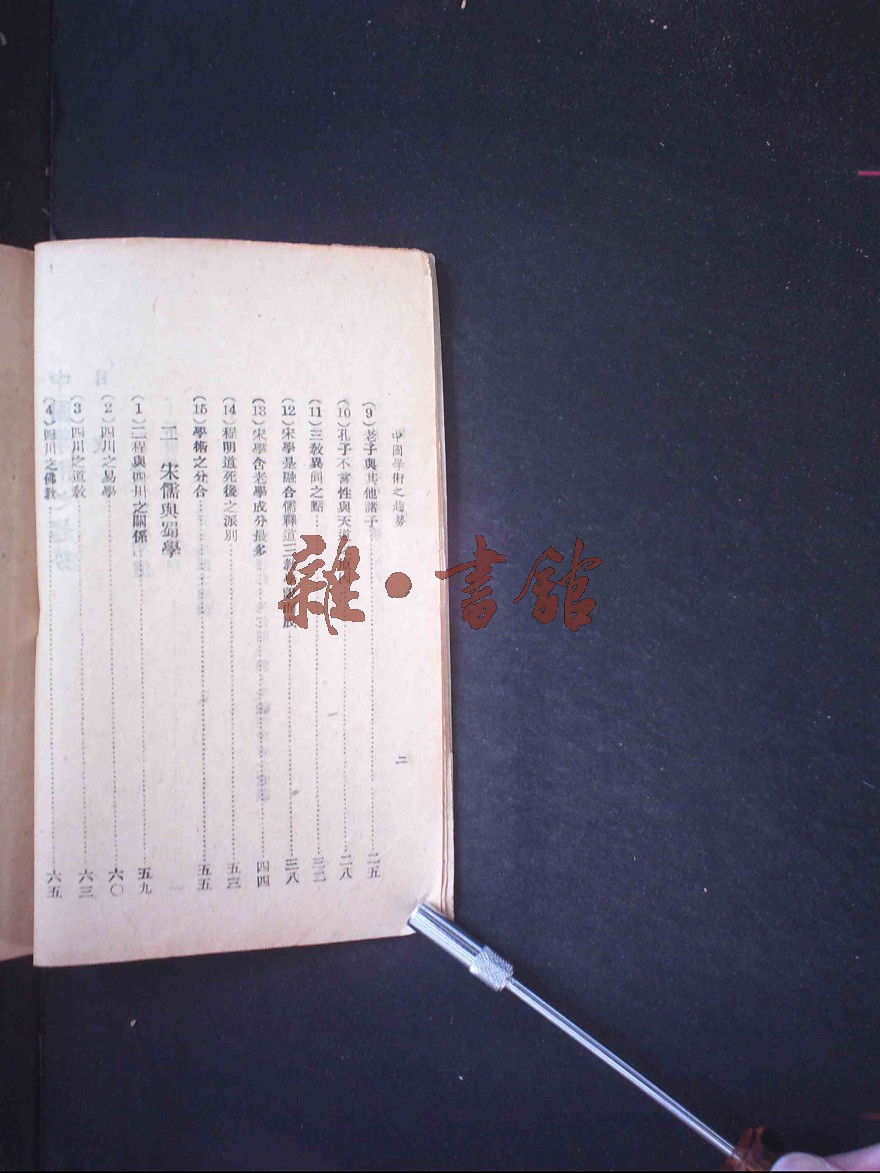 中國學術之趨勢
二
(9)老子與其他諸子……二五
(10)孔子不言性與天道……二八
(11)三教異同之點……三二
(12)宋學是融合儒釋道三教……三八
(13)宋學含老學成分最多……四四
(14)程明道死後之派別……五三
(15)學術之分合……五五
宋儒與蜀學
(1)二程與四川之關係……五九
(2)四川之易學……六〇
(3)四川之道教……六三
(4)四川之佛教……六五
雜·書館